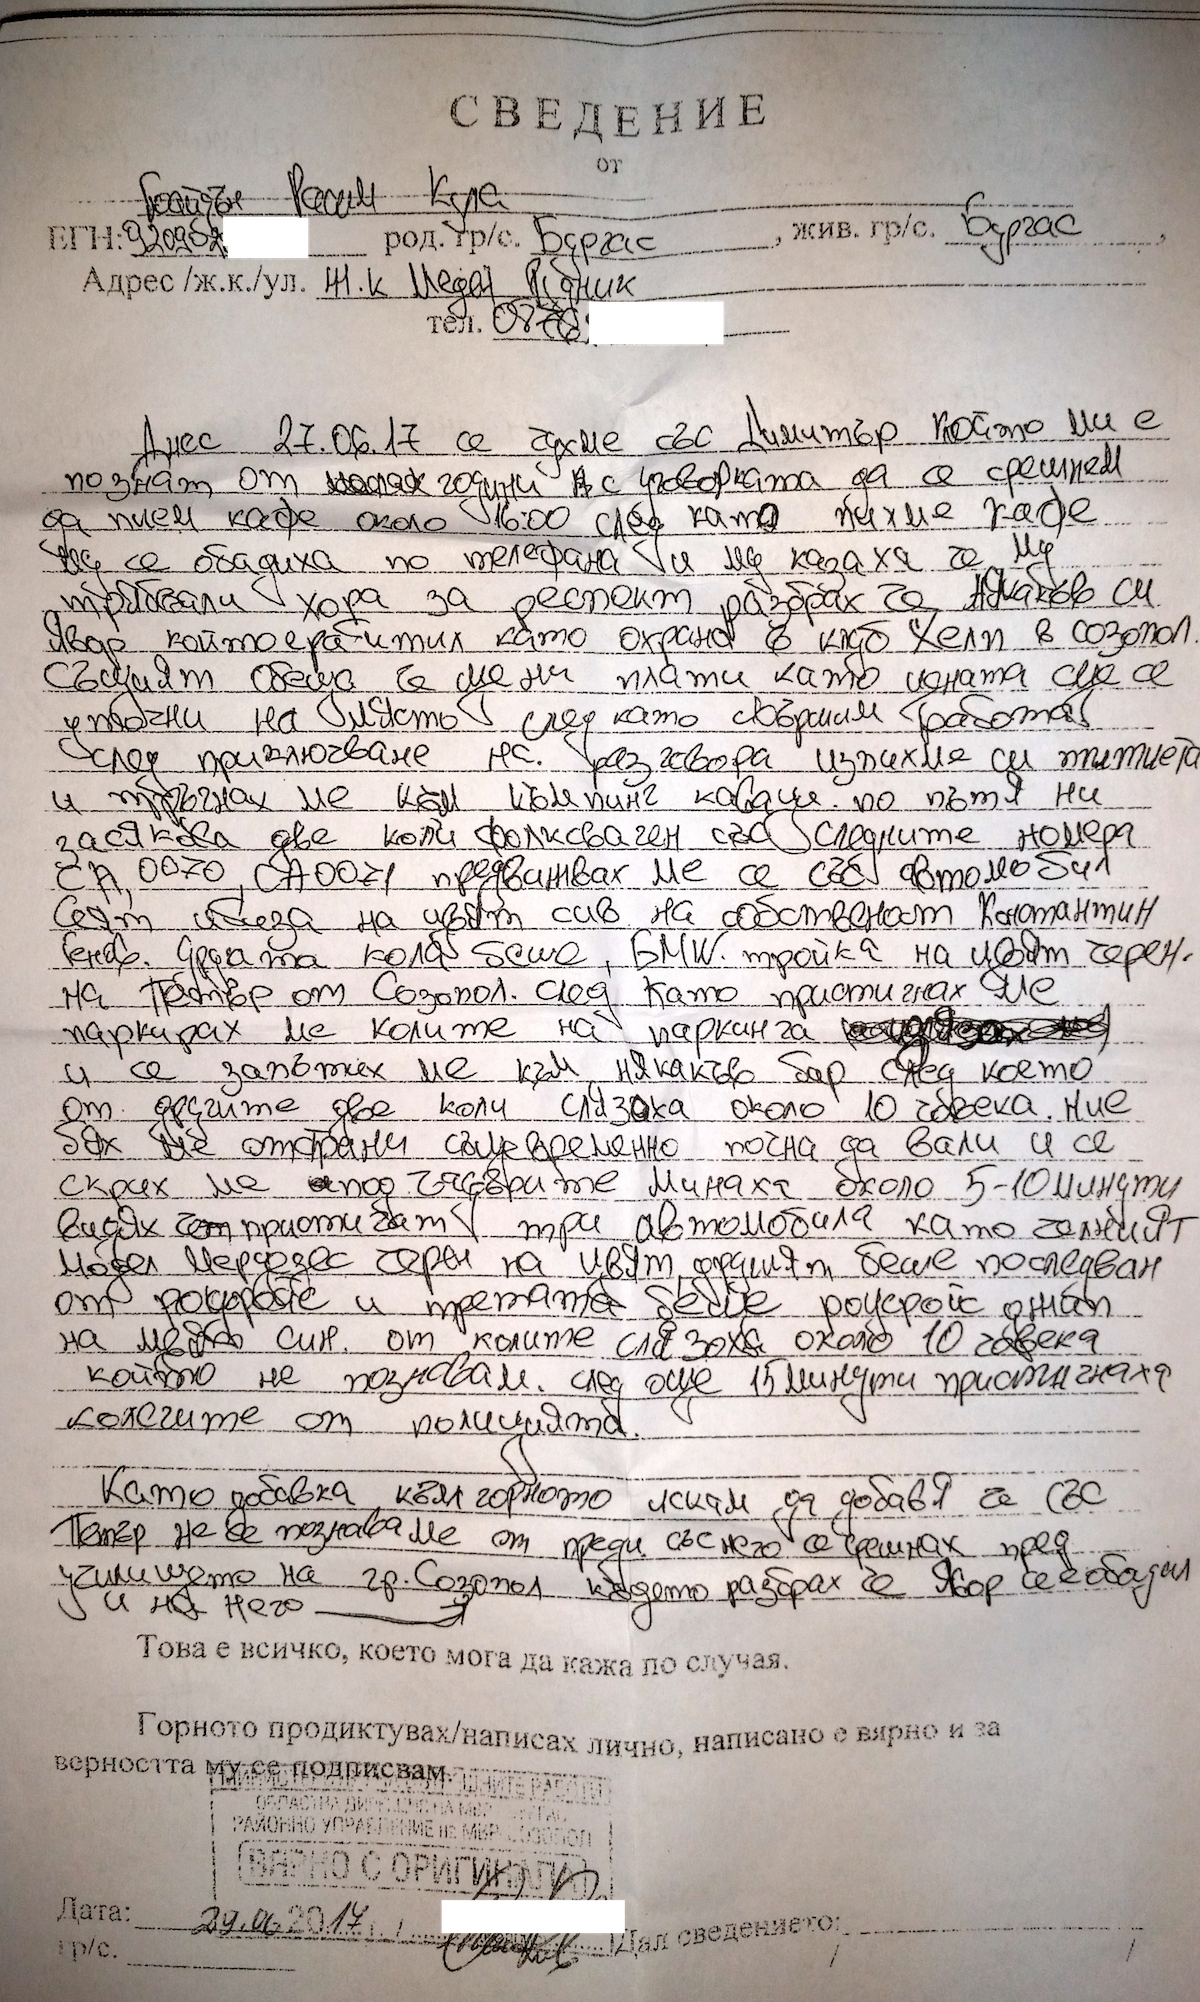 СВЕДЕНИЕ
от
Расим Кула
ЕГН: род. гр/с. Бургас, жив. гр/с. Бургас,
Адрес /ж.к./ул. Ж.к Меден Рудник
тел.
Днес 27.06.17 се чухме със Димитър който ми е
познат от години с уговорката да се срешнем
да пием кафе около 16:00 след като пихме кафе
му се обадиха по телефана и му казаха че му
трябвали хора за респект разбрах че някаков си
Явор който е работил като охрана в клуб Хелп в созопол.
Същият обеща че ще ни плати като цената ще се
уточни на място след като свършим работа
след приключване на разговора изпихме си питиета
и тръгнах ме към къмпинг каваци. по пътя ни
засякоха две коли фолксваген със следните номера
СА 0070, СА0071 предвижвах ме се със автомобил
Сеат ибиза на цвят сив на собственост Константин
Генов. Другата кола беше, БМW. тройка на цвят черен.
на Петър от Созопол. след като пристигнах ме
паркирах ме колите на паркинга
и се запътих ме към някакъв бар след което
от другите две коли слязоха около 10 човека. ние
бях ме отстрани същевременно почна да вали и се
скрих ме под чадърите минаха около 5-10 минути
видях че пристигат три автомобила като челният
модел Мерцедес черен на цвят, другият беше последван
от и третата беше
на цвят син. от колите слязоха около 10 човека
който не познавам. след още 15 минути пристигнаха
колегите от полицията.
Като добавка към горното искам да добавя че със
Петър не се познаваме от преди със него се срешнах пред
училището на гр. Созопол където разбрах че Явор се е обадил
и на него
Това е всичко, което мога да кажа по случая.
Горното продиктувах/написах лично, написано е вярно и за
верността му се подписвам.
МИНИСТЕРСТВО НА ВЪТРЕШНИТЕ РАБОТИ
ОБЛАСТНА ДИРЕКЦИЯ НА МВР БУРГАС
РАЙОННО УПРАВЛЕНИЕ на МВР СОЗОПОЛ
ВЯРНО С ОРИГИНАЛА
Дата: 29.06.2017 г. / Дал сведението:
гр/с. / /